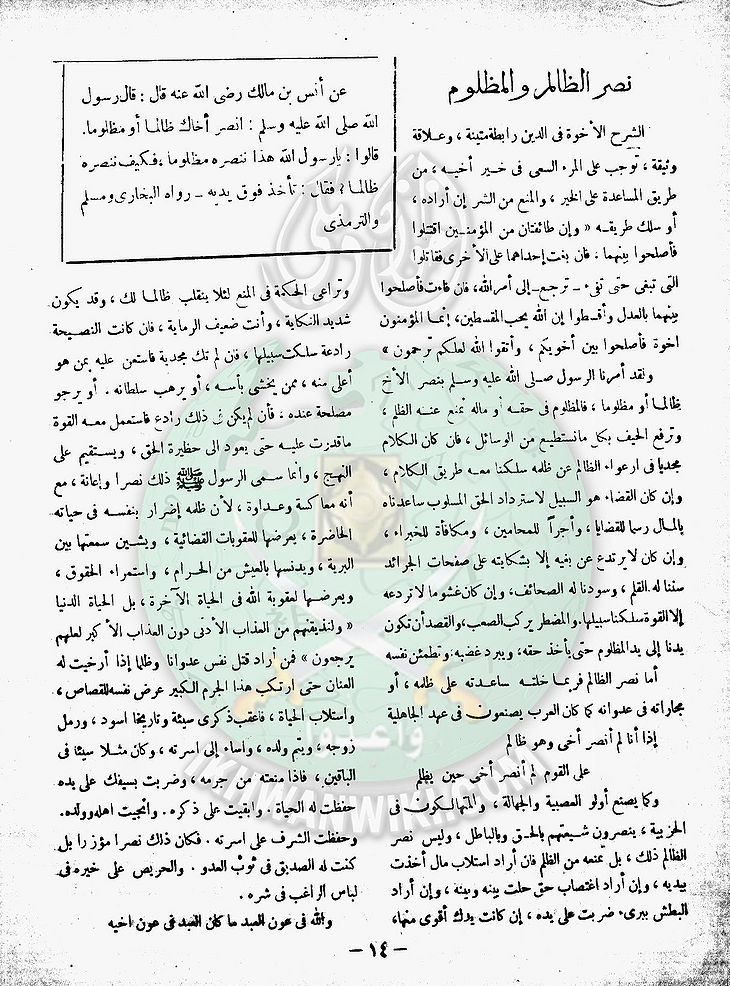 نصر الظالم والمظلوم
عن أنس بن مالك رضى الله عنه قال : قال رسول
الله صلى الله عليه وسلم : انصر أخاك ظالما أو مظلوما.
قالوا : يارسول الله هذا ننصره مظلوما ، فكيف ننصره
ظالما ؟ فقال : تأخذ فوق يديه ــ رواه البخارى ومسلم
والترمذى
الشرح الأخوة فى الدين رابطة متينة ، وعلاقة
وثيقة ، توجب على المرء السعى فى خير أخيه ، من
طريق المساعدة على الخير ، والمنع من الشر إن أراده ،
أو سلك طريقه « وإن طائفتان من المؤمنين اقتتلوا
فأصلحوا بينهما ، فان بغت إحداهما على الأخرى فقاتلوا
التى تبغى حتى تفىء ــ ترجع ــ إلى أمر الله، فان فاءت فأصلحوا
بينهما بالعدل وأقسطوا إن الله يحب المقسطين، إنما المؤمنون
اخوة فأصلحوا بين أخويكم ، واتقوا الله لعلكم ترحمون »
ولقد أمرنا الرسول صلى الله عليه وسلم بنصر الأخ
ظالما أو مظلوما ، فالمظلوم فى حقه أو ماله نمنع عنه الظلم ،
ونرفع الحيف بكل مانستطيع من الوسائل ، فان كان الكلام
مجديا فى ارعواء الظالم عن ظلمه سلكنا معه طريق الكلام ،
وإن كان القضاء هو السبيل لاسترداد الحق المسلوب ساعدناه
بالمال رسما للقضايا ، وأجراً للمحامين ، ومكافأة للخبراء ،
وإن كان لايرتدع عن بغيه إلا بشكايته على صفحات الجرائد
سننا له القلم ، وسودنا له الصحائف، وإن كان غشوما لا تردعه
إلا القوة سلكنا سبيلها. والمضطر يركب الصعب، والقصد أن تكون
يدنا إلى يد المظلوم حتى يأخذ حقه، ويبرد غضبه، وتطمئن نفسه
أما نصر الظالم فربما خلته ساعدته على ظلمه ، أو
مجاراته فى عدوانه كما كان العرب يصنعون فى عهد الجاهلية
إذا أنا لم أنصر أخى وهو ظالم
على القوم لم أنصر أخى حين يظلم
وكما يصنع أولو العصبية والجهالة ، والمتهالكون فى
الحزبية ، ينصرون شيعتهم بالحق وبالباطل ، وليس نصر
الظالم ذلك ، بل تمنعه من الظلم فان أراد استلاب مال أخذت
بيديه ، وإن أراد اغتصاب حق حلت بينه وبينه ، وإن أراد
البطش ببرىء ضربت على يده ، إن كانت يدك أقوى منها،
وتراعى الحكمة فى المنع لئلا ينقلب ظالما لك ، وقد يكون
شديد النكاية ، وأنت ضعيف الرماية ، فان كانت النصيحة
رادعة سلكت سبيلها ، فان لم تك مجدية فاستعن عليه بمن هو
أعلى منه ، ممن يخشى بأسه ، أو يرهب سلطانه . أو يرجو
مصلحة عنده ، فأن لم يكن فى ذلك رادع فاستعمل معه القوة
ماقدرت عليه حتى يعود الى حظيرة الحق ، ويستقيم على
النهج ، وانما سمى الرسول ﷺ ذلك نصرا وإعانة ، مع
أنه معاكسة وعداوة ، لأن ظلمه إضرار بنفسه فى حياته
الحاضرة ، يعرضها للعقوبات القضائية ، ويشين سمعتها بين
البرية ، ويدنسها بالعيش من الحرام ، واستمراء الحقوق ،
ويعرضها لعقوبة الله فى الحياة الآخرة ، بل الحياة الدنيا
« ولنذيقنهم من العذاب الأدنى دون العذاب الأكبر لعلهم
يرجعون » فمن أراد قتل نفس عدوانا وظلما إذا أرخيت له
العنان حتى ارتكب هذا الجرم الكبير عرض نفسه للقصاص ،
واستلاب الحياة ، فاعقب ذكرى سيئة وتاريخا اسود ، ورمل
زوجه ، ويتم ولده ، واساء إلى اسرته ، وكان مثلا سيئا فى
الباقين ، فاذا منعته من جرمه ، وضربت بسيفك على يده
حفظت له الحياة . وابقيت على ذكره . وانجيت اهله وولده.
وحفظت الشرف على اسرته . فكان ذلك نصرا مؤزرا بل
كنت له الصديق فى ثوب العدو . والحريص على خيره فى
لباس الراغب فى شره .
والله فى عون العبد ما كان العبد فى عون اخيه
— ١٤ —
وأعدوا
IKHWANWIKI.COM